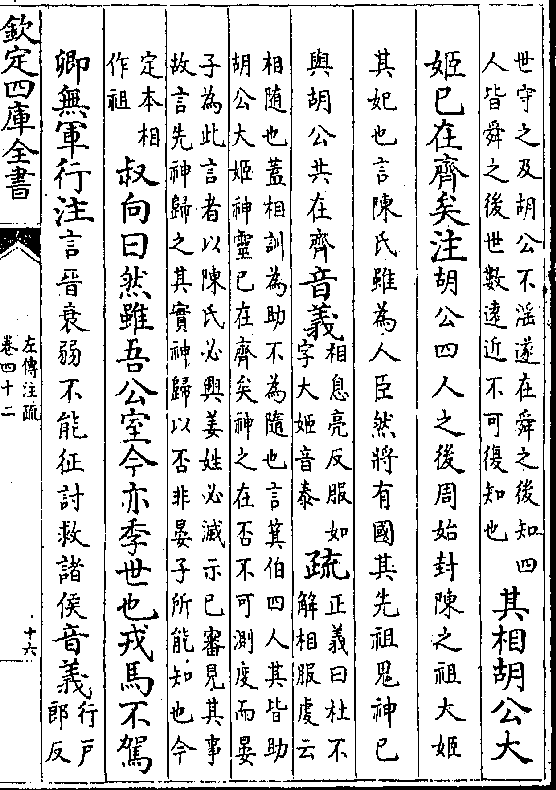 世守之及胡公不滛遂在舜之後知四
人皆舜之後世數遠近不可復知也
其相胡公大
姬已在齊矣注胡公四人之後周始封陳之祖大姬
其妃也言陳氏雖為人臣然將有國其先祖鬼神已
與胡公共在齊音義
相息亮反服如
字大姬音泰
疏
正義曰杜不
解相服虔云
相隨也蓋相訓為助不為隨也言箕伯四人其皆助
胡公大姬神靈已在齊矣神之在否不可測度而晏
子為此言者以陳氏必興姜姓必滅示已審見其事
故言先神歸之其實神歸以否非晏子所能知也今
定本相
作祖
叔向曰然雖吾公室今亦季世也戎馬不駕
卿無軍行注言晉衰弱不能征討救諸侯音義
行戶
郎反
欽定四庫全書
左傳注疏
卷四十二
十六